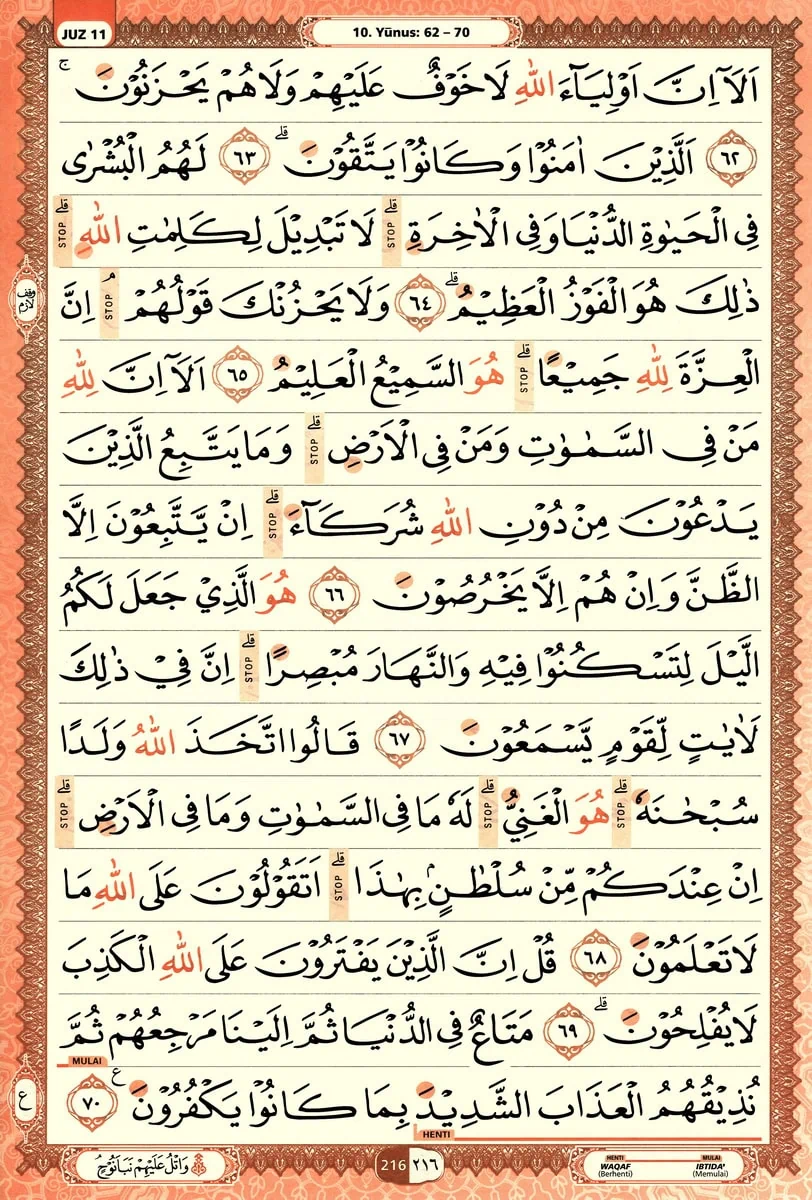 JUZ 11
10. Yūnus: 62 – 70
اَلَآ اِنَّ اَوْلِيَاۤءَ اللّٰهِ لَا خَوْفٌ عَلَيْهِمْ وَلَا هُمْ يَحْزَنُوْنَۚ
۝٦٢ اَلَّذِيْنَ اٰمَنُوْا وَكَانُوْا يَتَّقُوْنَۗ ۝٦٣ لَهُمُ الْبُشْرٰى
فِى الْحَيٰوةِ الدُّنْيَا وَفِى الْاٰخِرَةِۗ STOP لَا تَبْدِيْلَ لِكَلِمٰتِ اللّٰهِۗ STOP
ذٰلِكَ هُوَ الْفَوْزُ الْعَظِيْمُۗ ۝٦٤ وَلَا يَحْزُنْكَ قَوْلُهُمْۘ STOP اِنَّ
وقف لازم
الْعِزَّةَ لِلّٰهِ جَمِيْعًاۗ STOP هُوَ السَّمِيْعُ الْعَلِيْمُ ۝٦٥ اَلَآ اِنَّ لِلّٰهِ
مَنْ فِى السَّمٰوٰتِ وَمَنْ فِى الْاَرْضِۗ STOP وَمَا يَتَّبِعُ الَّذِيْنَ
يَدْعُوْنَ مِنْ دُوْنِ اللّٰهِ شُرَكَاۤءَۗ STOP اِنْ يَّتَّبِعُوْنَ اِلَّا
الظَّنَّ وَاِنْ هُمْ اِلَّا يَخْرُصُوْنَ ۝٦٦ هُوَ الَّذِيْ جَعَلَ لَكُمُ
الَّيْلَ لِتَسْكُنُوْا فِيْهِ وَالنَّهَارَ مُبْصِرًاۗ STOP اِنَّ فِيْ ذٰلِكَ
لَاٰيٰتٍ لِّقَوْمٍ يَّسْمَعُوْنَ ۝٦٧ قَالُوا اتَّخَذَ اللّٰهُ وَلَدًا
سُبْحٰنَهٗۗ STOP هُوَ الْغَنِيُّۗ STOP لَهٗ مَا فِى السَّمٰوٰتِ وَمَا فِى الْاَرْضِۗ STOP
اِنْ عِنْدَكُمْ مِّنْ سُلْطٰنٍۢ بِهٰذَاۗ STOP اَتَقُوْلُوْنَ عَلَى اللّٰهِ مَا
لَا تَعْلَمُوْنَ ۝٦٨ قُلْ اِنَّ الَّذِيْنَ يَفْتَرُوْنَ عَلَى اللّٰهِ الْكَذِبَ
لَا يُفْلِحُوْنَۗ ۝٦٩ مَتَاعٌ فِى الدُّنْيَا ثُمَّ اِلَيْنَا مَرْجِعُهُمْ ثُمَّ
MULAI
نُذِيْقُهُمُ الْعَذَابَ الشَّدِيْدَ بِمَا كَانُوْا يَكْفُرُوْنَ ࣖ ۝٧٠
ع
HENTI
وَاتْلُ عَلَيْهِمْ نَبَاَ نُوْحٍۘ
216 ٢١٦
HENTI MULAI
WAQAF IBTIDA'
(Berhenti) (Memulai)